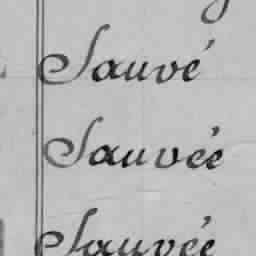 Sauvé
Sauvée
Sauvée